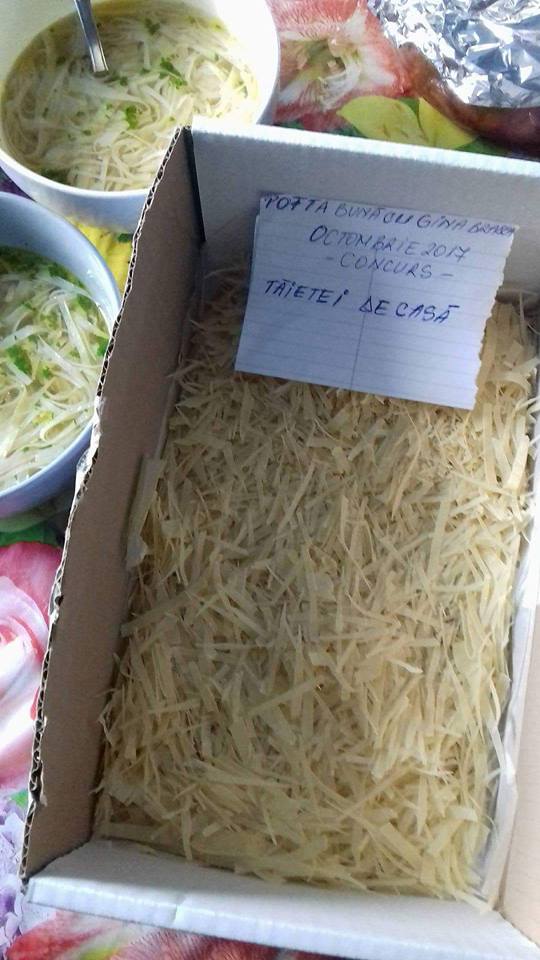 POFTA BUNĂ CU GINA BRADEA
OCTOMBRIE 2017
- CONCURS -
TĂIEȚEI DE CASĂ